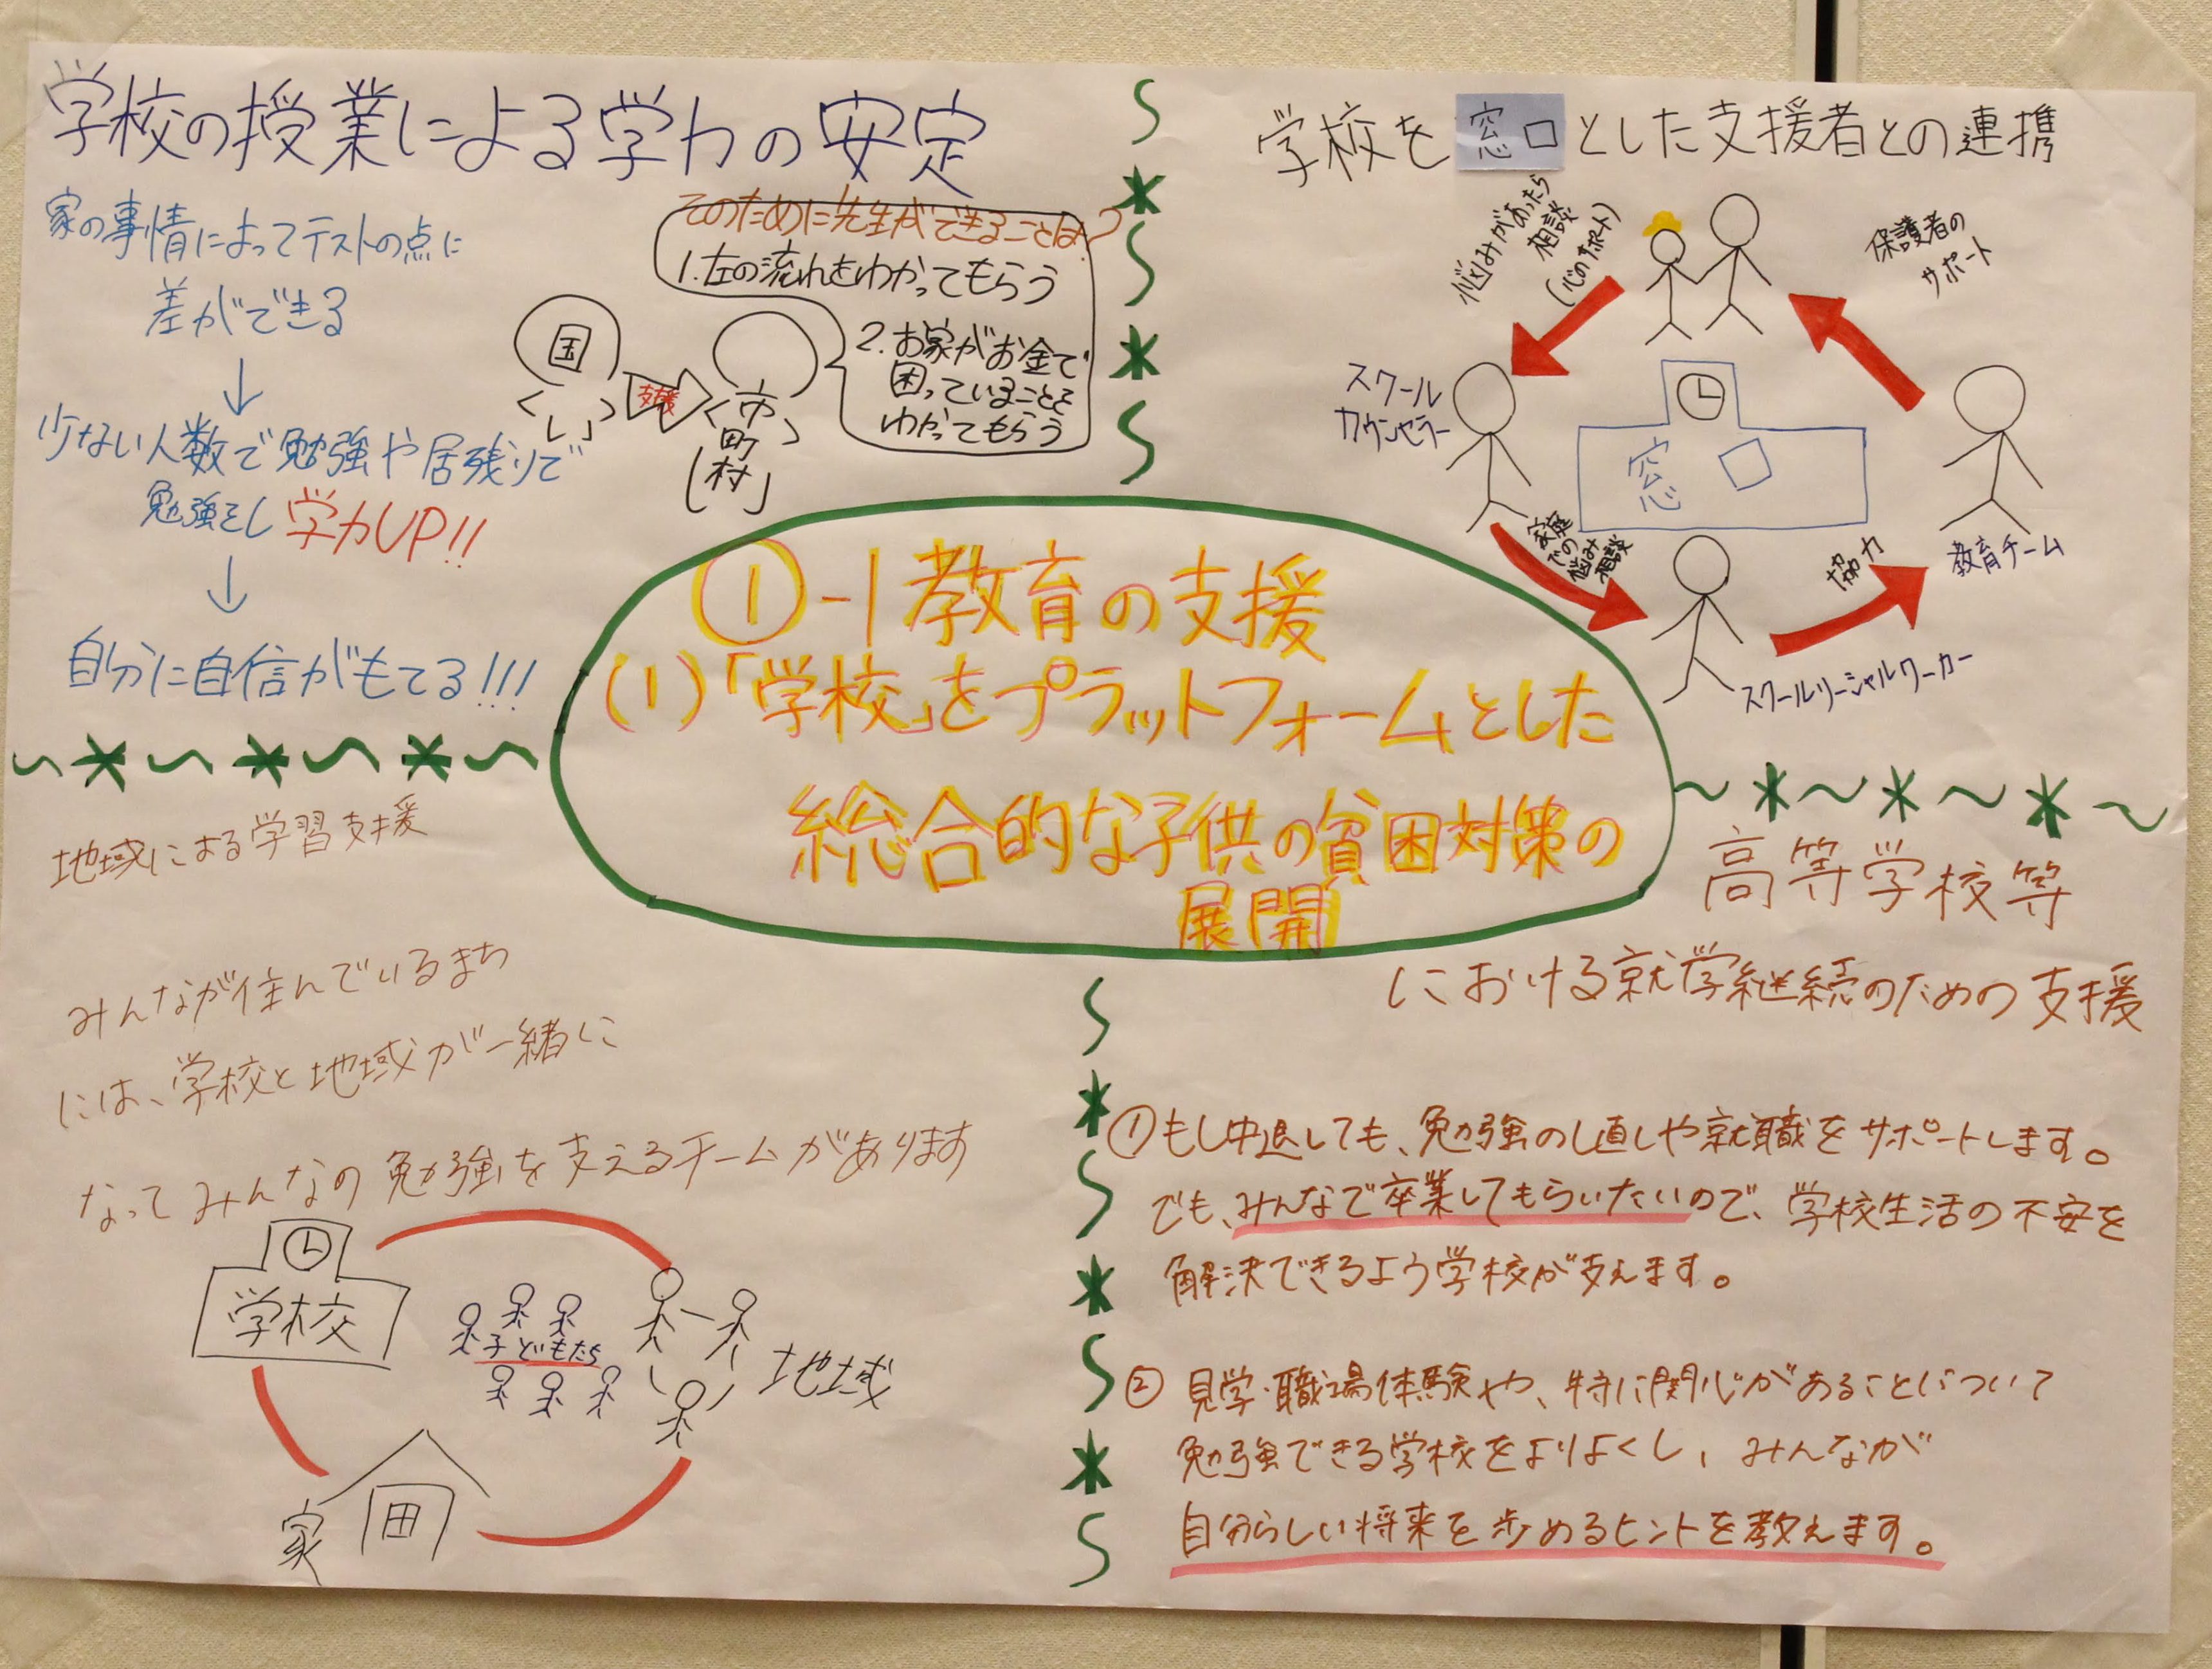 学校の授業による学力の安定
家の事情によってテストの点に
差ができる
↓
少ない人数で勉強や居残りで
勉強をし 学力UP!!
↓
自分に自信がもてる!!!
そのために先生ができることは?
1.左の流れをわかってもらう
2.お家がお金で
困っていることを
わかってもらう
国
支援
市
町
村
学校を窓口とした支援者との連携
悩みがあったら
相談
(心のサポート)
保護者の
サポート
スクール
カウンセラー
窓口
家庭
での
悩み
相談
協力
教育チーム
スクールソーシャルワーカー
①-1教育の支援
(1)「学校」をプラットフォームとした
総合的な子供の貧困対策の
展開
地域による学習支援
みんなが住んでいるまち
には、学校と地域が一緒に
なってみんなの勉強を支えるチームがあります
学校
子どもたち
地域
家
高等学校等
における就学継続のための支援
①もし中退しても、勉強のし直しや就職をサポートします。
でも、みんなで卒業してもらいたいので、学校生活の不安を
解決できるよう学校が支えます。
②見学・職場体験や、特に関心があることについて
勉強できる学校をよりよくし、みんなが
自分らしい将来を歩めるヒントを教えます。